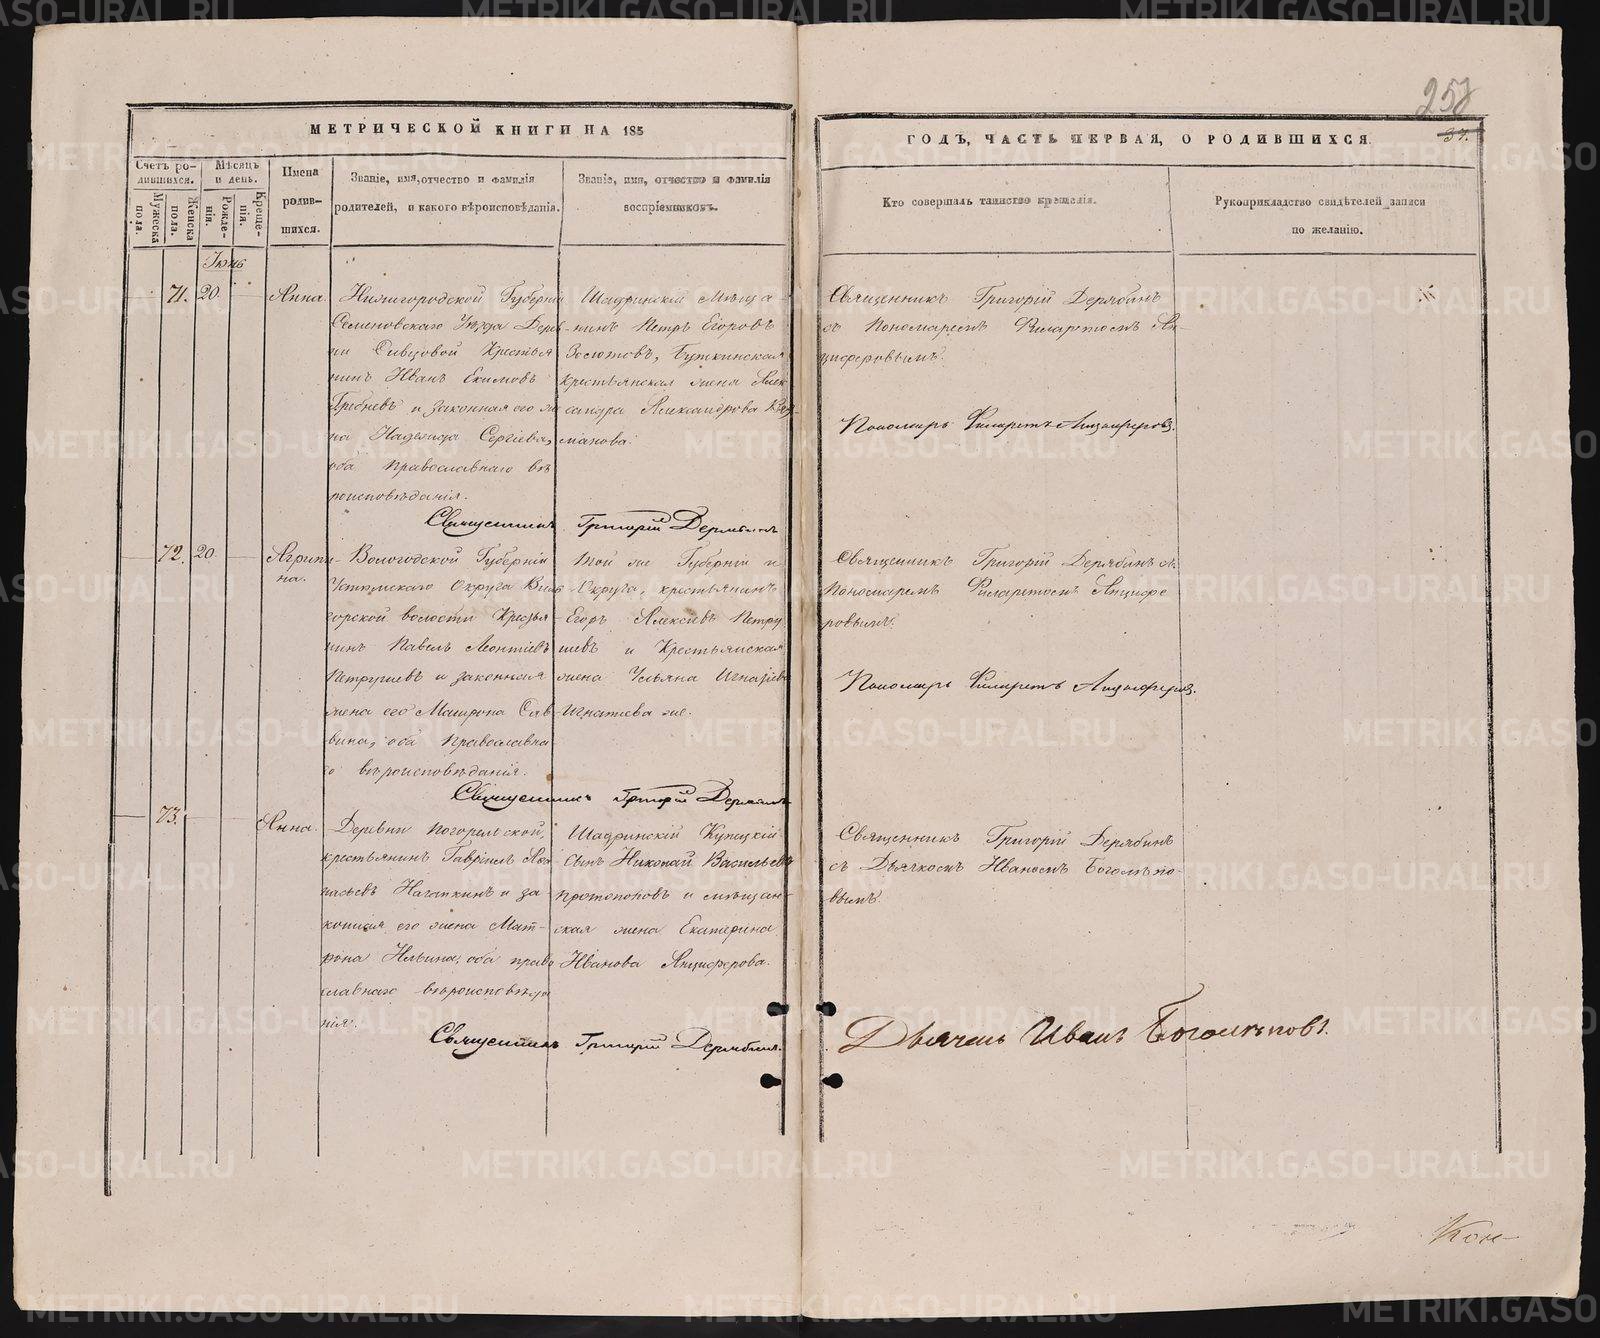 257
37.
МЕТРИЧЕСКОЙ КНИГИ НА 185
ГОДЪ, ЧАСТЬ ПЕРВАЯ, О РОДИВШИХСЯ.
Счетъ родившихся.
Мужеска пола.
Женска пола.
Мѣсяцъ и день.
Рожденія.
Крещенія.
Имена родившихся.
Званіе, имя, отчество и фамилія
родителей, и какого вѣроисповѣданія.
Званіе, имя, отчество и фамилія
воспріемниковъ.
Кто совершалъ таинство крещенія.
Рукоприкладство свидѣтелей записи
по желанію.
Іюнь
71. 20. Анна.
Нижегородской Губерніи
Семеновскаго Уѣзда Дерев-
ни Сивцовой Крестья
нинъ Иванъ Екимовъ
Гребневъ и законная его же
на Надежда Сергіева,
оба Православнаго вѣ
роисповѣданія.
Шадринскій Мѣща-
нинъ Петръ Егоровъ
Золотовъ, Буткинская
крестьянская жена Алек
сандра Александрова
Священникъ Григорій Дерябинъ
съ Пономаремъ Филаретомъ Ан-
циферовымъ.
Пономарь Филаретъ Анциферов.
Священникъ Григорій Дерябинъ
72. 20. Агрипи-
на.
Вологодской Губерніи
Округа
горской волости Крестья
нинъ Павелъ Леонтіевъ
Петрушевъ и законная
жена его Матрона Сав
вина, оба Православна
го вѣроисповѣданія.
Той же Губерніи и
Округа, крестьянинъ
Егоръ Алексѣевъ Петру
шевъ и Крестьянская
жена Ульяна Игнатіева
Игнатіева же.
Священникъ Григорій Дерябинъ съ
Пономаремъ Филаретомъ Анцифе
ровымъ.
Пономарь Филаретъ Анциферов.
Священникъ Григорій Дерябинъ
73. Анна.
Деревни Погорельской,
крестьянинъ Гавріилъ Афа
насьевъ Нагаткинъ и за
конная его жена Мат-
рона Ильина, оба право
славнаго вѣроисповѣда
нія.
Шадринскій Купецкій
сынъ Николай Васильевъ
Протопоповъ и мѣщан-
ская жена Екатерина
Иванова Анциферова.
Священникъ Григорій Дерябинъ
съ Дьячкомъ Иваномъ Боголѣпо-
вымъ.
Священникъ Григорій Дерябинъ.
Дьячекъ Иванъ Боголѣповъ.
Кон-
METRIKI.GASO-URAL.RU